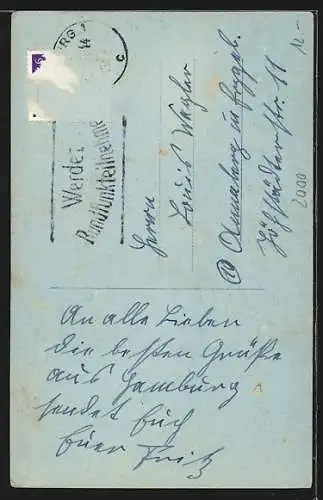 BURG 1
14
c
Werdet
Rundfunkteilnehmer
Herrn
Louis Wagler
Annaberg in Erzgeb.
Jöhstädterstr. 11
12.-
2000
An alle Lieben
die besten Grüße
aus Hamburg
sendet Euch
Euer Fritz